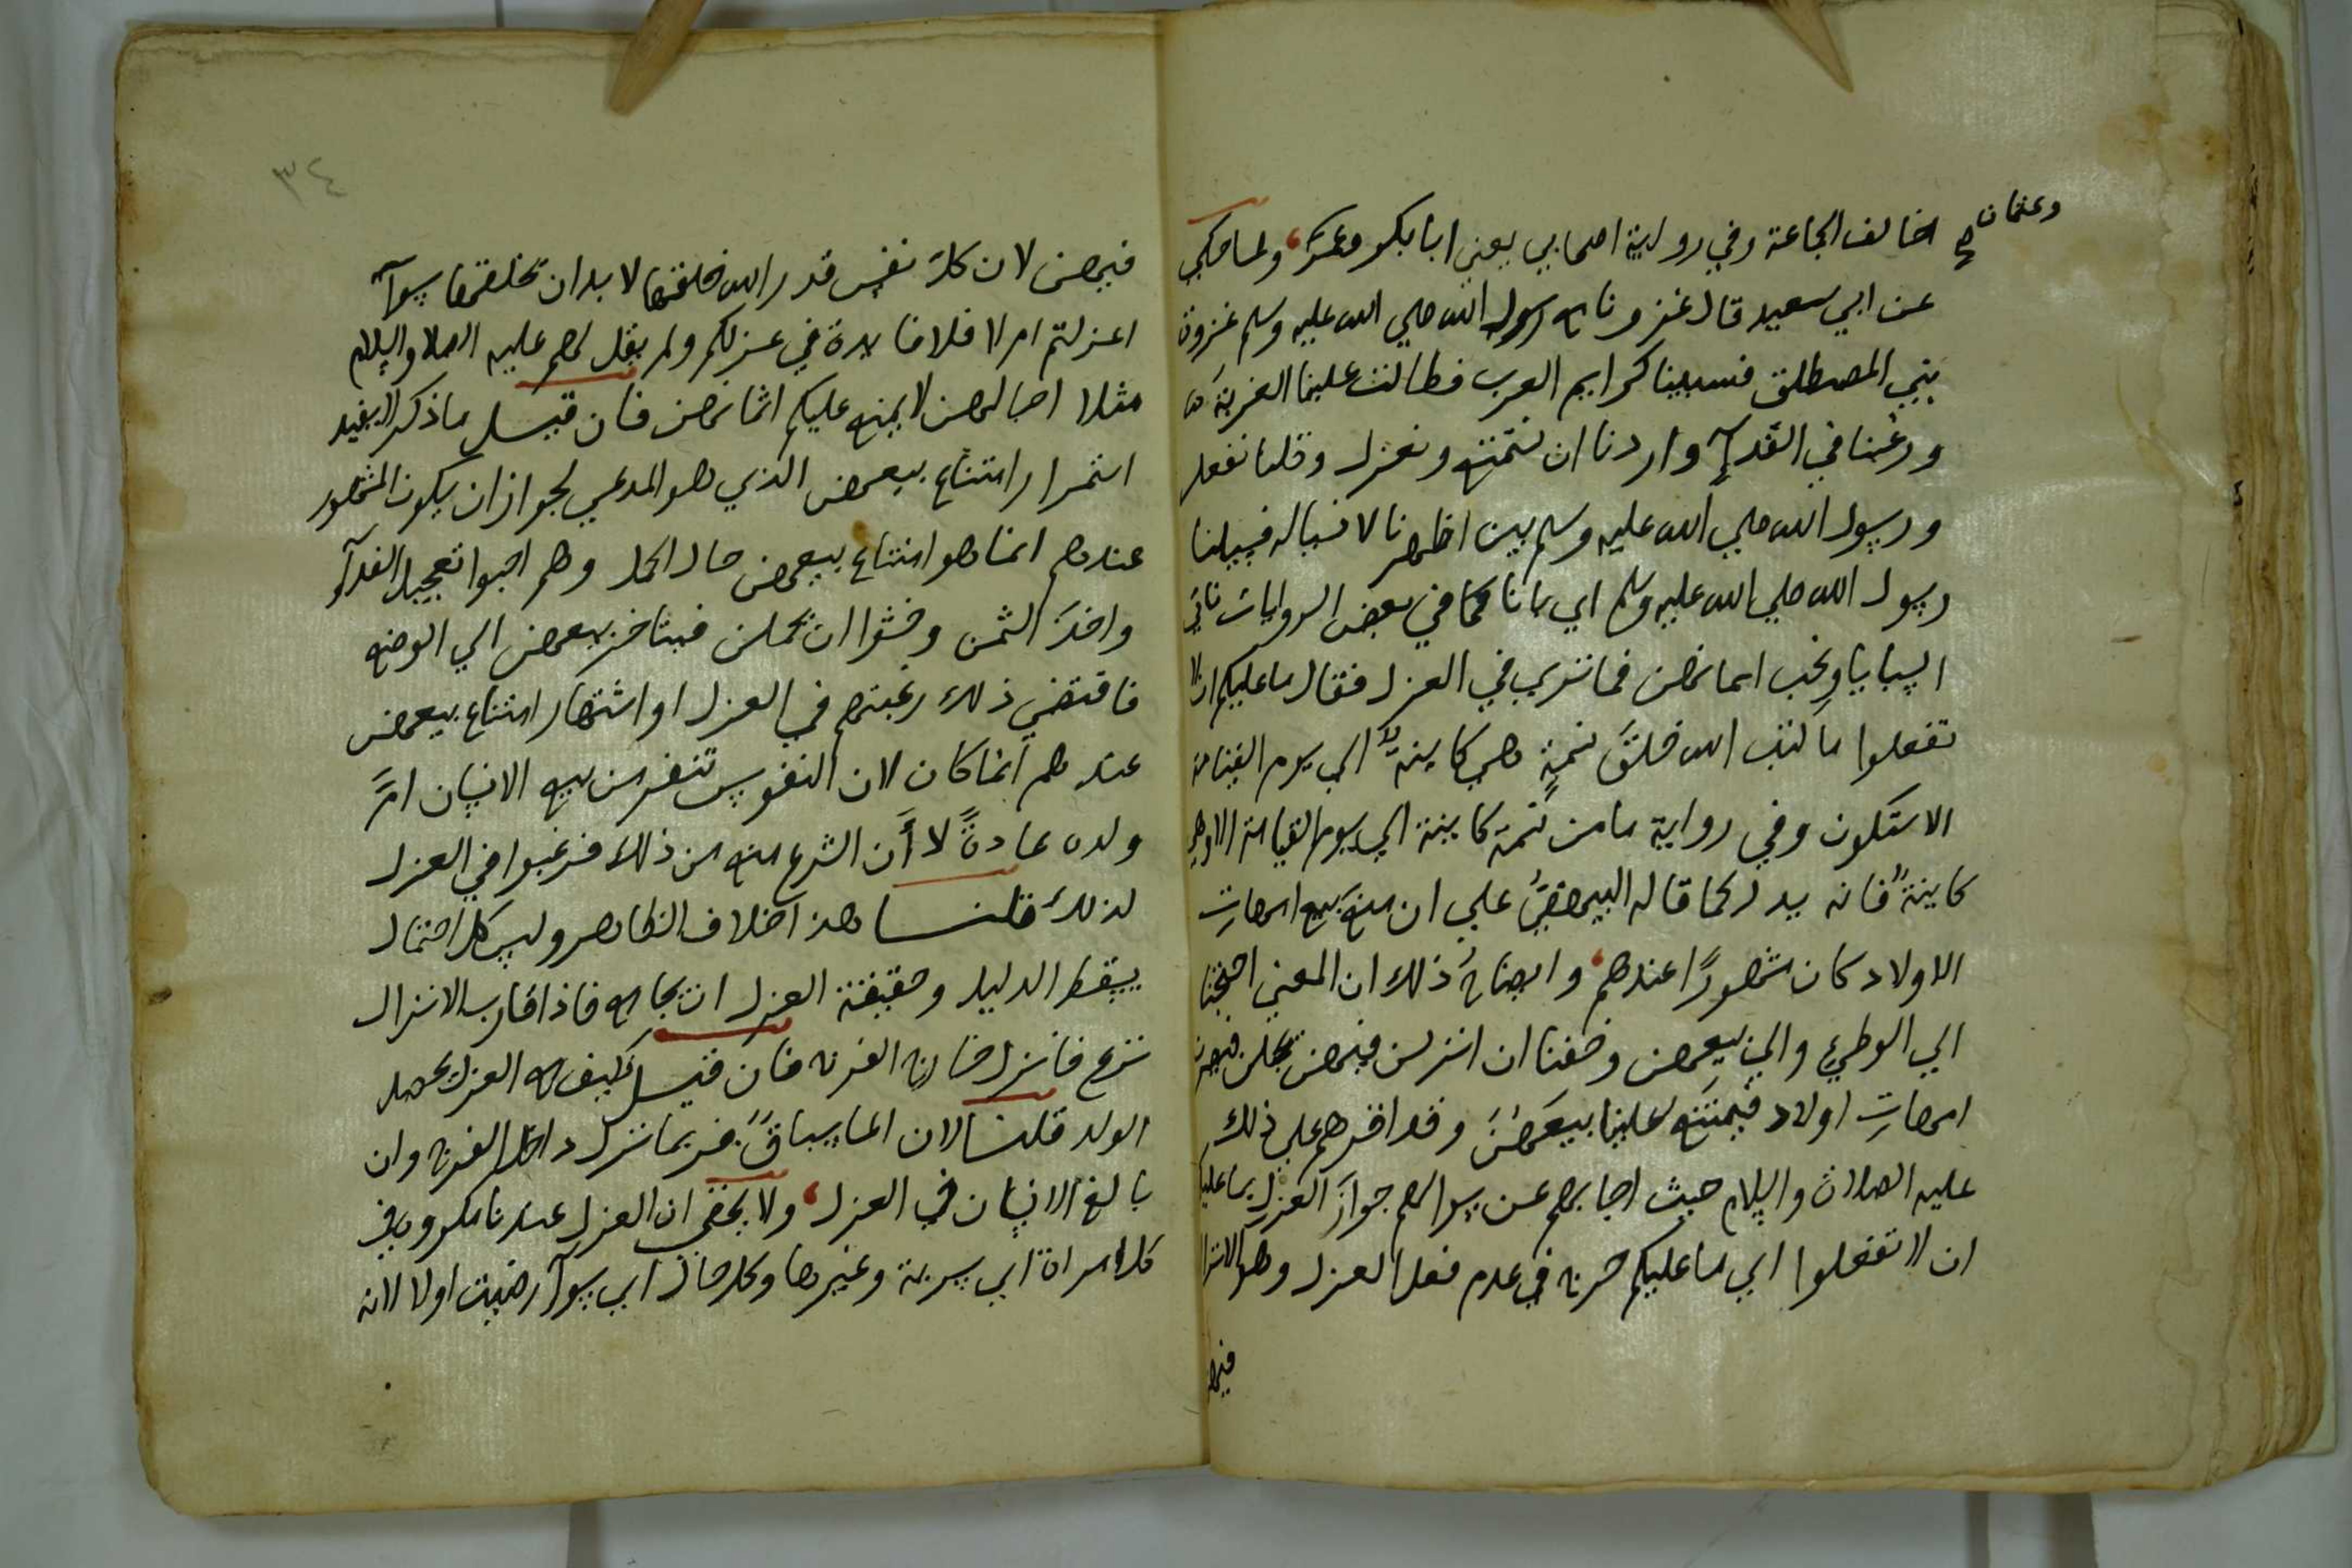 وعثمان صح
اخالف الجماعة وفي رواية اصحابي يعني ابا بكر وعمر ولما حكي
عن ابي سعيد قال غزونا مع رسول الله صلي الله عليه وسلم غزوة
بني المصطلق فسبينا كرايم العرب فطالت علينا العزبة
ورغبنا في الفدآء واردنا ان نستمتع ونعزل وقلنا نفعل
ورسول الله صلي الله عليه وسلم بين اظهرنا لا نساله فسالنا
رسول الله صلي الله عليه وسلم اي بانا كما في بعض الروايات ناتي
السبايا ونحب اثمانهن فما تري في العزل فقال ما عليكم ان لا
تفعلوا ما كتب الله خلق نسمة هي كاينة الي يوم القيامة
الا ستكون وفي رواية ما من نسمة كاينة الي يوم القيامة الا وهي
كاينة فانه يدل كما قاله البيهقي علي ان منع بيع امهات
الاولاد كان مشهورا عندهم وايضاح ذلك ان المعني احتجنا
الي الوطيء والي بيعهن وخفنا ان انزلن فيهن تحملن فيصرن
امهات اولاد فيمتنع علينا بيعهن وقد اقرهم علي ذلك
عليه الصلاة والسلام حيث اجابهم عن سوالهم جواز العزل بما عليكم
ان لا تفعلوا اي ما عليكم حرج في عدم فعل العزل وهو الانزال
فيهن
٣٤
فيهن لان كل نفس قدر الله خلقها لا بد ان تخلقها سوآء
اعزلتم ام لا فلا فايدة في عزلكم ولم يقل لهم عليه الصلاة والسلام
مثلا احبالهن لا يمنع عليكم اثمانهن فان قيل ما ذكر لا يفيد
استمرار امتناع بيعهن الذي هو المدعي لجواز ان يكون المشهور
عندهم انما هو امتناع بيعهن حال الحمل وهم احبوا تعجيل الفدآء
واخذ الثمن وخشوا ان يحملن فيتاخر بيعهن الي الوضع
فاقتضي ذلك رغبتهم في العزل او اشتهار امتناع بيعهن
عندهم انما كان لان النفوس تنفر من بيع الانسان ام
ولده عادة لا أن الشرع منع من ذلك فرغبوا في العزل
لذلك قلنا هذا خلاف الظاهر وليس كل احتمال
يسقط الدليل وحقيقة العزل ان يجامع فاذا قارب الانزال
نزع فانزل خارج الفرج فان قيل كيف مع العزل يحصل
الولد قلنا لان الما سباق فربما نزل داخل الفرج وان
بالغ الانسان في العزل ولا يخفي ان العزل عندنا مكروه في
كل امراة اي سرية وغيرها وكل حال اي سوآء رضيت اولا لانه